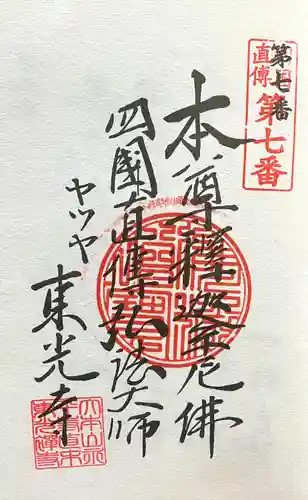 直傳
第七番
第七番
本尊釋迦牟尼佛
四國直傳弘法大師
ヤツヤ
東光寺